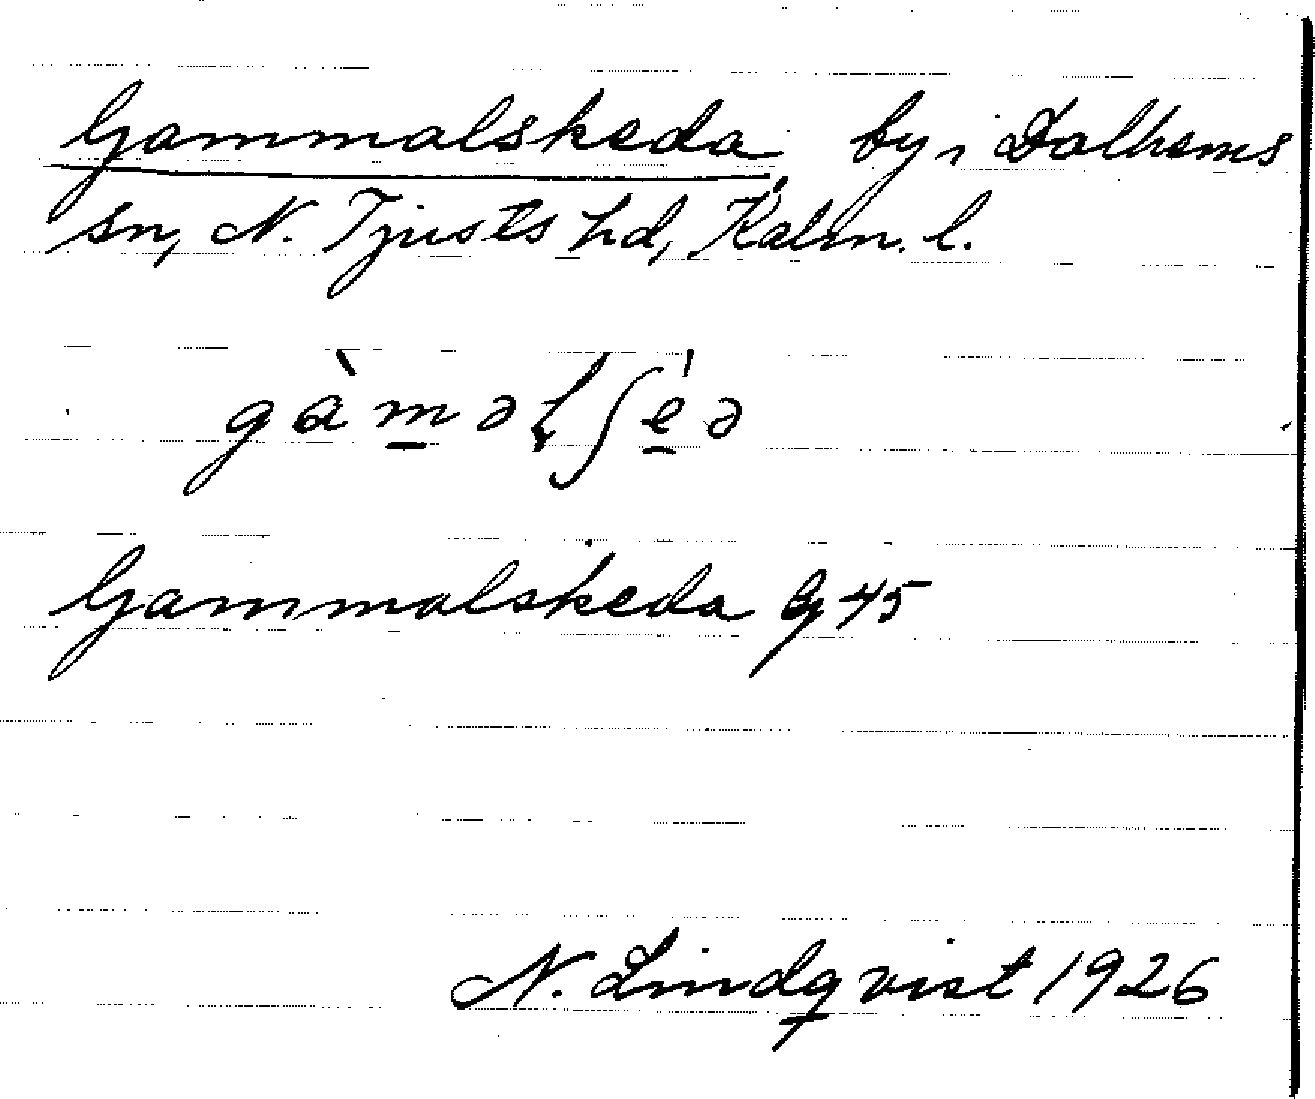 Gammalskeda by i Dalhems
sn, N. Tjusts hd, Kalm. l.
gàməlʃéə
Gammalskeda Gg 45
N. Lindqvist 1926